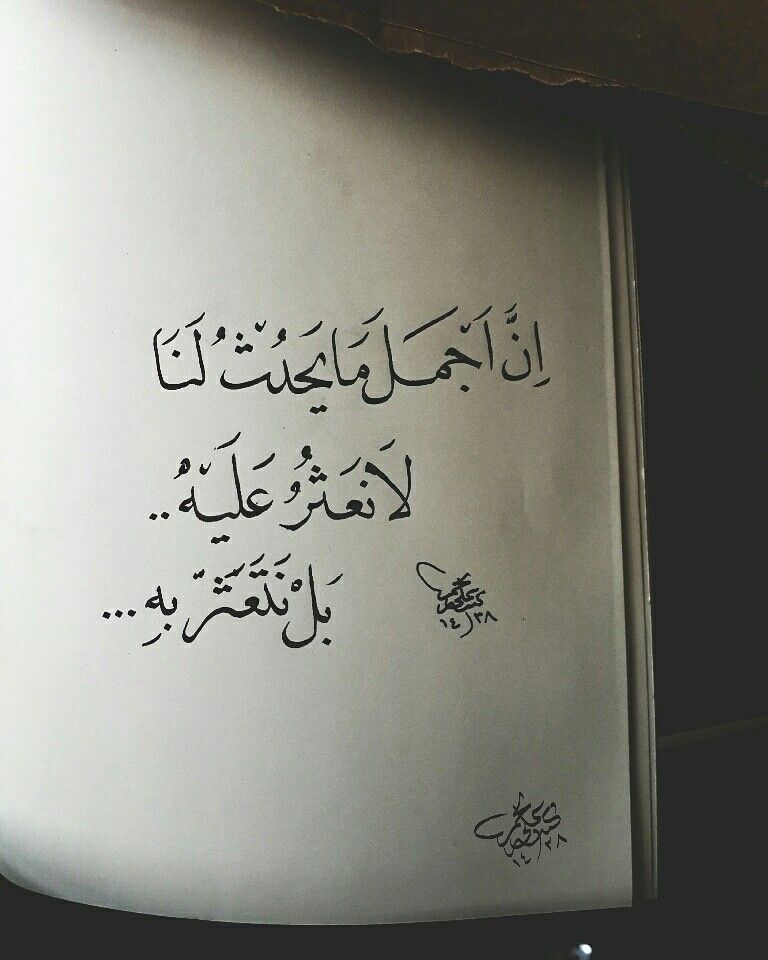 إِنَّ أَجْمَلَ مَا يَحْدُثُ لَنَا
لَا نَعْثُرُ عَلَيْهِ..
بَلْ نَتَعَثَّرُ بِهِ...
١٤/٣٨
١٤/٣٨